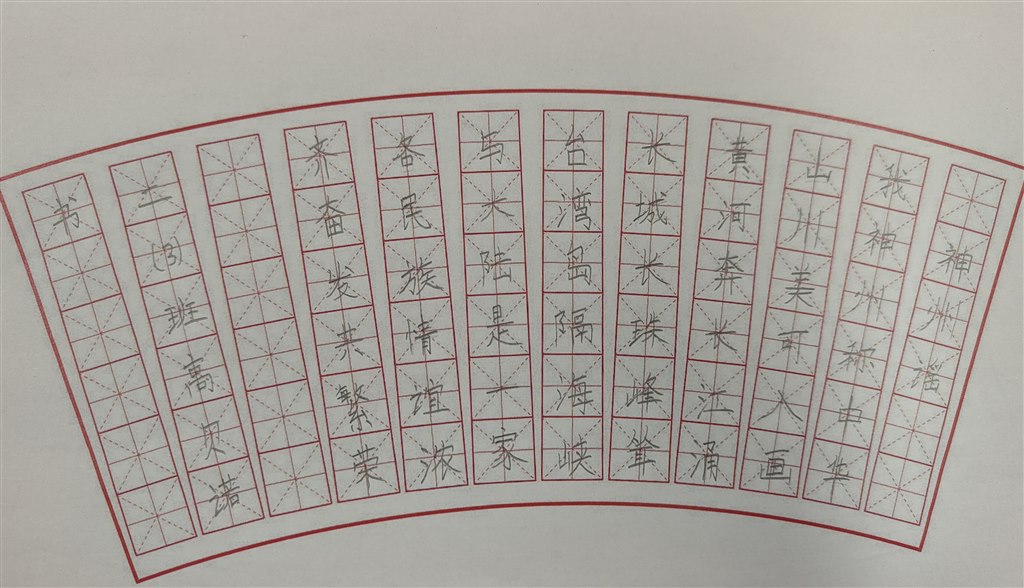 神州谣
我神州称中华
山川美可入画
黄河奔长江涌
长城长珠峰耸
台湾岛隔海峡
与大陆是一家
各民族情谊浓
齐奋发共繁荣
二(3)班高贝诺
书